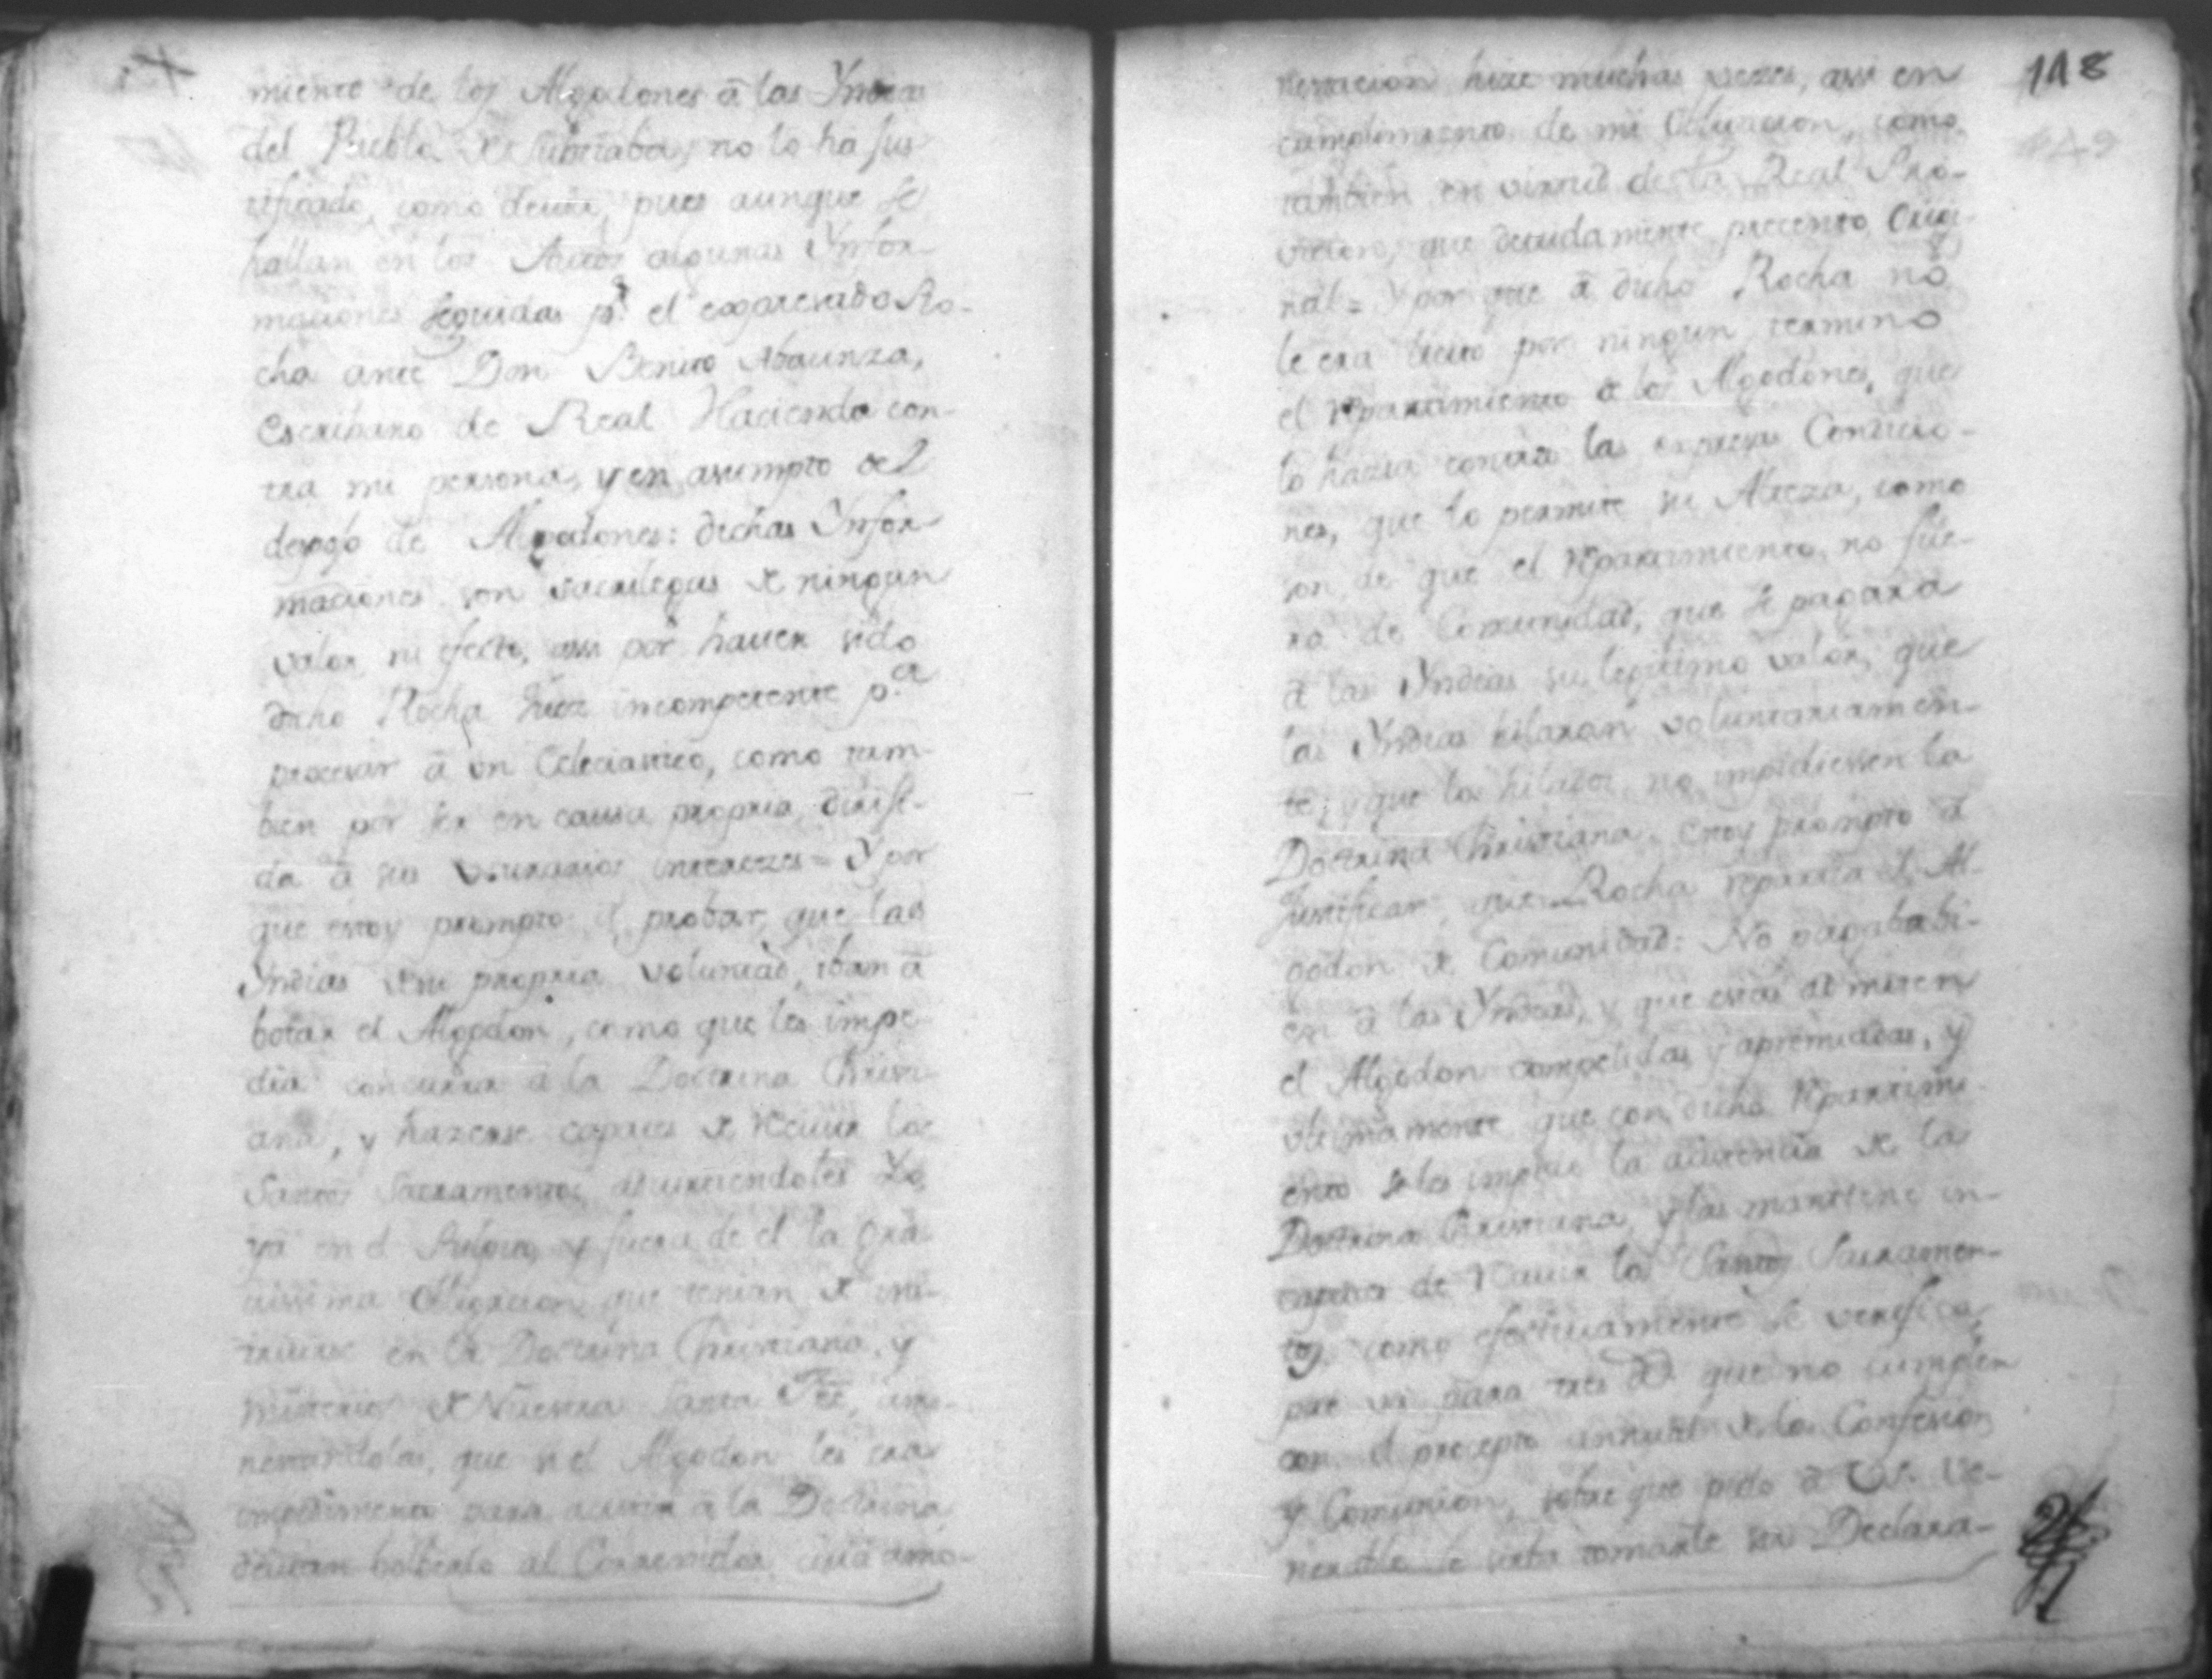 miento de los Algodones â las Yndias
del Pueblo de Subtiaba, no lo ha jus
tificado, como devia, pues aunque se
hallan en los Autos algunas Ynfor-
maciones seguidas pr. el expresado Ro-
cha ante Don Benito Abaunza,
Escribano de Real Hacienda con-
tra mi persona, y en asumpto del
despojo de Algodones: dichas Ynfor
maciones son sacrilegas de ningun
valor, ni efecto, assi por haver sido
dicho Rocha Juez incompetente p.a
procesar â un Ecleciastico, como tam-
bien por ser en causa propria, diriji-
da â sus usurarios interezes = Y por
que estoy prompto â probar, que las
Yndias de su propria voluntad, iban â
botar el Algodon, como que les impe
dia concurrir â la Doctrina Christi-
ana, y hazerse capazes de recivir los
Santos Sacramentos, advirtiendoles Yo,
ya en el Pulpito, y fuera de el la gra
vissima Obligacion, que tenian de ins-
truirse en la Doctrina Christiana, y
misterios de Nuestra Santa Fee, amo-
nestandolas, que si el Algodon les era
impedimento para acistir a la Doctrina
devian bolberlo al Corregidor, cuia amo-
118
nestacion hize muchas vezes, assi en
cumplimiento de mi Obligacion, como
tambien en virtud de la Real Pro-
vicion, que devidamente precento Origi-
nal = Y por que â dicho Rocha no
le era licito por ningun termino
el repartimiento de los Algodones, que
lo hazia contra las expresas Condicio-
nes, que lo permite su Alteza, como
son, de que el repartimiento, no fue-
ra de Comunidad, que se pagara
â las Yndias su legitimo valor, que
las Yndias hilaran voluntariamen-
te, y que los hilados, no impidiessen la
Doctrina Christiana. estoy prompto â
Justificar, que Rocha repartia el Al-
godon de Comunidad: No pagaba bi-
en â las Yndias, y que estas admiten
el Algodon compelidas, y apremiadas, y
ultimamente que con dicho repartimi
ento se les impide la acistencia de la
Doctrina Christiana, y las mantiene in-
capazes de recivir los Santos Sacramen-
tos, como efectivamente se verifica,
pues va para tres âs. que no cumplen
con el precepto annual de la Confesion,
y Comunion, sobre que pido â V.S. Ve-
nerable se sirba tomarle su Declara-